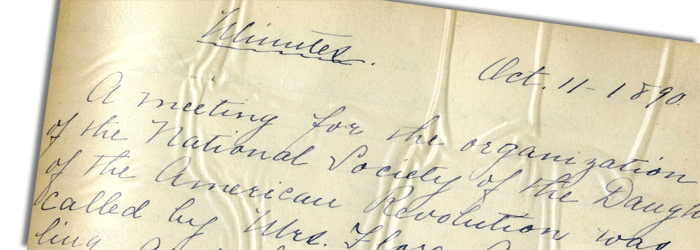 Minutes.
Oct. 11-1890.
A meeting for the organization
of the National Society of the Daugh
of the American Revolution was
called by Mrs. Flora
ling